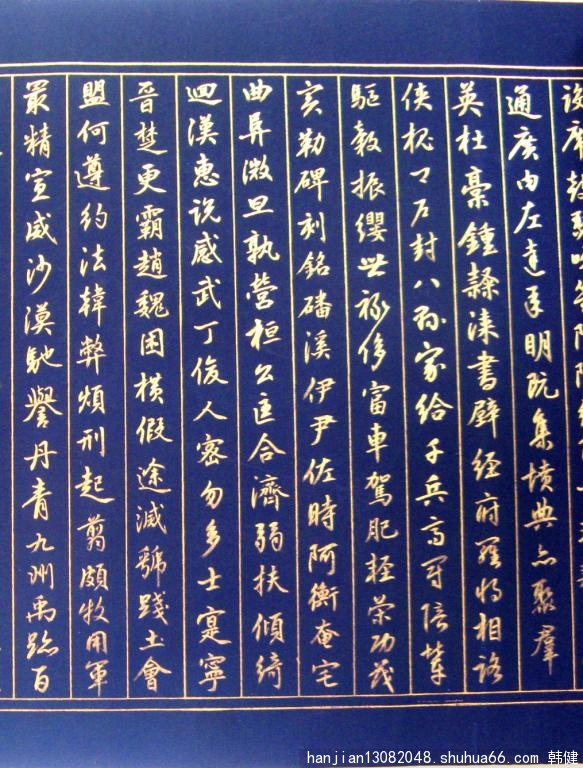 設席鼓瑟吹笙
通廣内左達承明既集墳典亦聚羣
英杜稾鍾隸漆書壁經府羅將相路
俠槐卿戶封八縣家給千兵高冠陪輦
驅轂振纓世祿侈富車駕肥輕策功茂
實勒碑刻銘磻溪伊尹佐時阿衡奄宅
曲阜微旦孰營桓公匡合濟弱扶傾綺
迴漢惠說感武丁俊乂密勿多士寔寧
晉楚更霸趙魏困橫假途滅虢踐土會
盟何遵約法韓弊煩刑起翦頗牧用軍
最精宣威沙漠馳譽丹青九州禹跡百
hanjian13082048.shuhua66.com 韩健